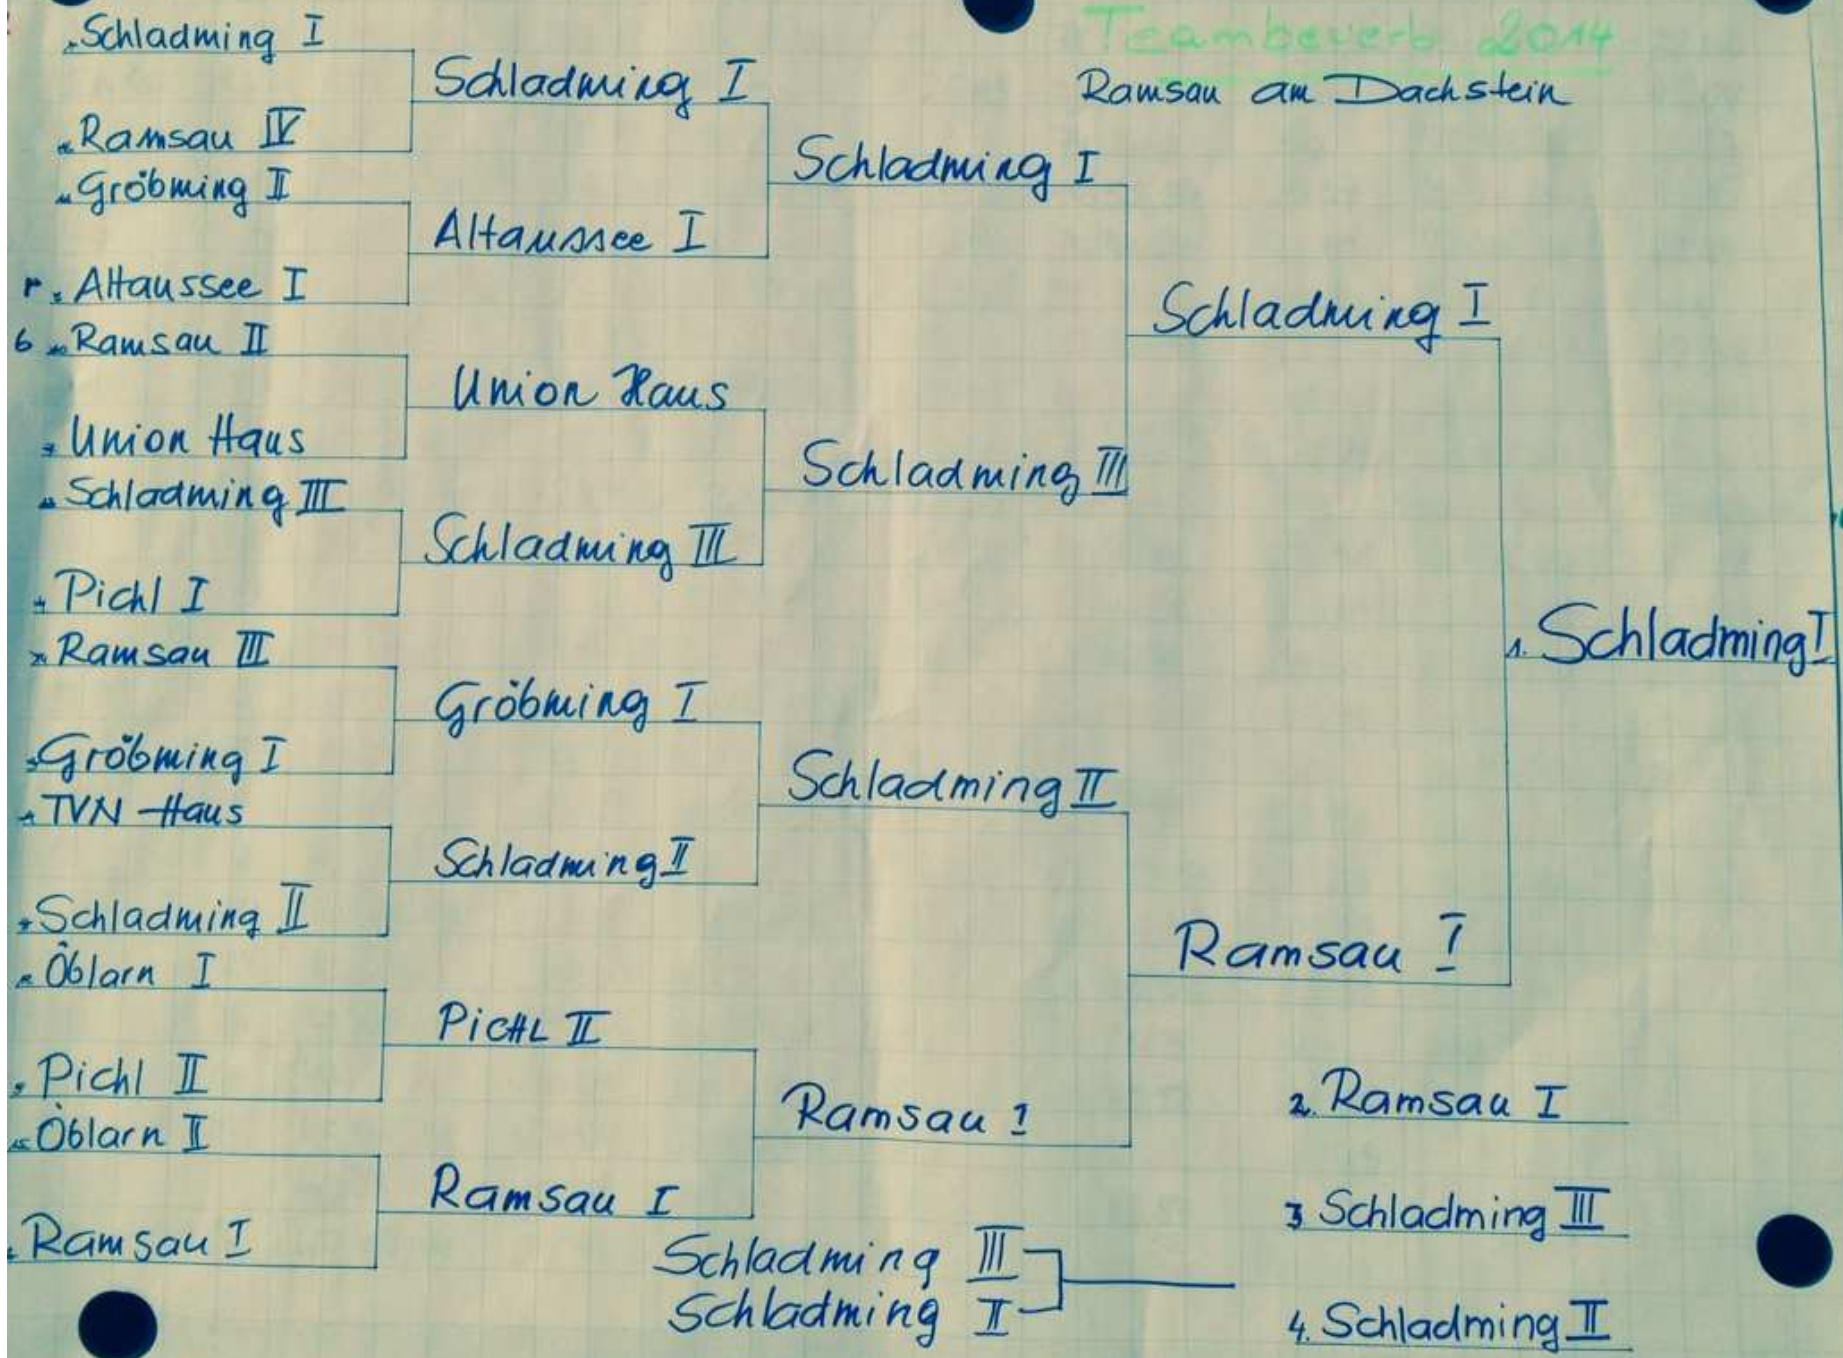 Teambewerb 2014
Ramsau am Dachstein
Schladming I
Ramsau IV
Gröbming II
Altaussee I
Ramsau II
Union Haus
Schladming III
Pichl I
Ramsau III
Gröbming I
TVN Haus
Schladming II
Öblarn I
Pichl II
Öblarn II
Ramsau I
Schladming I
Altaussee I
Union Haus
Schladming III
Gröbming I
Schladming II
PICHL II
Ramsau I
Schladming I
Schladming III
Schladming II
Ramsau I
Schladming I
Ramsau I
1. Schladming I
Schladming III
Schladming II
2. Ramsau I
3 Schladming III
4. Schladming II